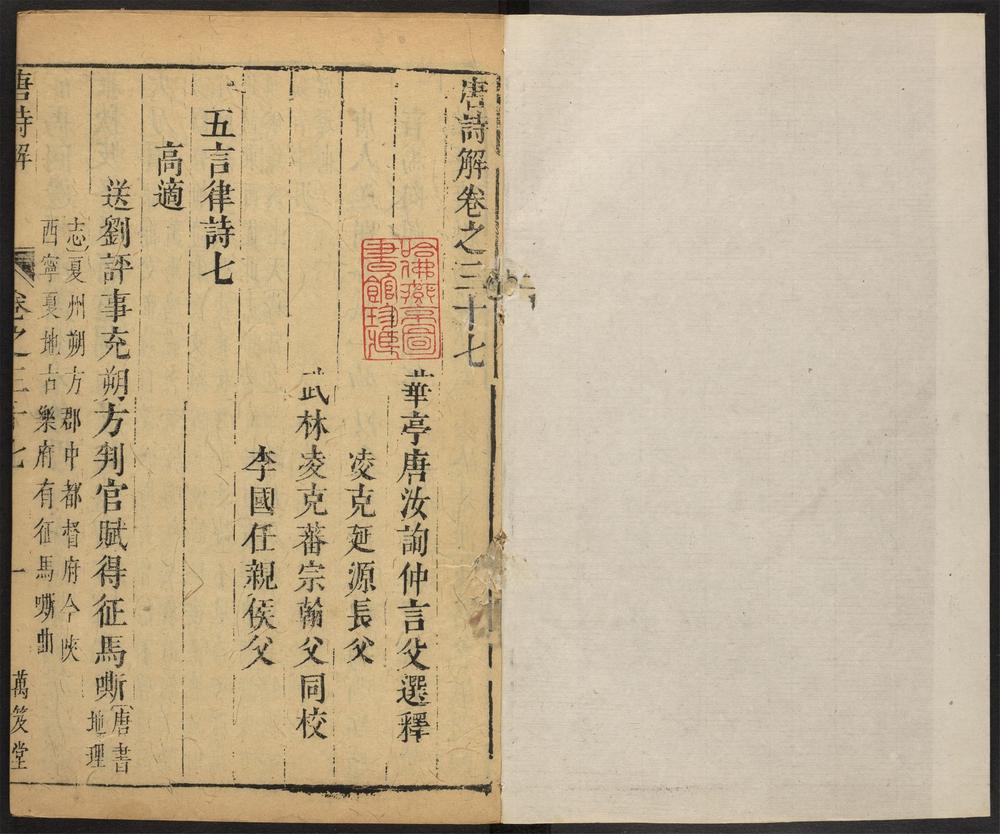 唐詩解卷之三十七
哈佛燕京圖書館珍藏
華亭唐汝詢仲言父選釋
凌克延源長父
武林凌克蕃宗翰父同校
李國任親侯父
五言律詩七
高適
送劉評事充朔方判官賦得征馬嘶
唐書
地理
志夏州朔方郡中都督府今陜
西寧夏地古樂府有征馬嘶曲
唐詩解
卷之三十七
一
萬笈堂